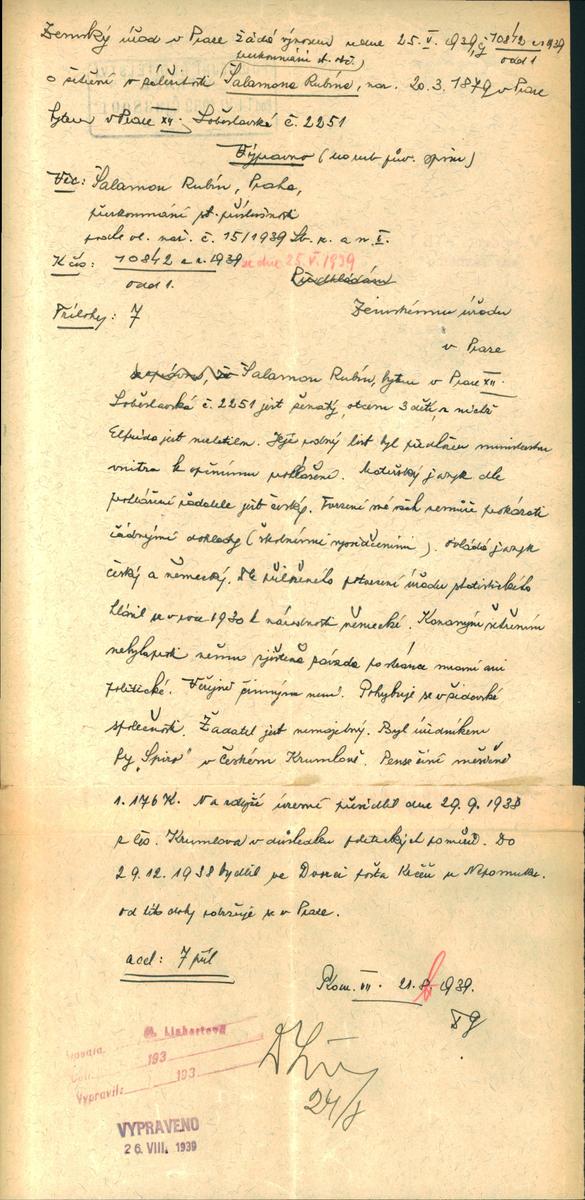 Zemský úřad v Praze žádá výnosem ze dne 25. V. 1939, č. 10842 1939
odd 1
přezkoumání st. obč.
o šetření v záležitosti Šalamona Rubína, nar. 20.3.1879 v Praze
bytem v Praze XII., Soběslavská č. 2251
Výpravno (
Věc: Šalamon Rubín, Praha,
přezkoumání st. příslušnosti
podle vl. nař. č. 15/1939 Sb. z. a n. II.
K čís: 10842 1939 ze dne 25. V. 1939
odd 1.
Předkládám
Přílohy: 7
Zemskému úřadu
v Praze
Šalamon Rubín, bytem v Praze XII.
Soběslavská č. 2251 jest ženatý, otcem 3 dětí, z nichž
Elfrida jest nezletilá. Její rodný list byl předložen ministerstvu
vnitra k opčnímu prohlášení. Mateřský jazyk dle
prohlášení žadatele jest český. Tvrzení své však nemůže prokázati
žádnými doklady (školními vysvědčeními). Ovládá jazyk
český a německý. Dle přiloženého potvrzení úřadu statistického
hlásil se v roce 1930 k národnosti německé. Konaným šetřením
nebyla proti němu zjištěna závada po stránce mravní ani
politické. Veřejně činným není. Pohybuje se v židovské
společnosti. Žadatel jest nemajetný. Byl úředníkem
fy „Spiro" v Českém Krumlově. Pense činí měsíčně
1.176 K. Na zdejší území přesídlil dne 29.9.1938
z Čes. Krumlova v důsledku politických poměrů. Do
29.12.1938 bydlil ve Dvorci pošta u Nepomuka.
od této doby zdržuje se v Praze.
acl: 7 příl
Kom. VII. 21. 8. 1939.
24/8
M. Linhartová
193
Vypravil: 193
VYPRAVENO
26. VIII. 1939